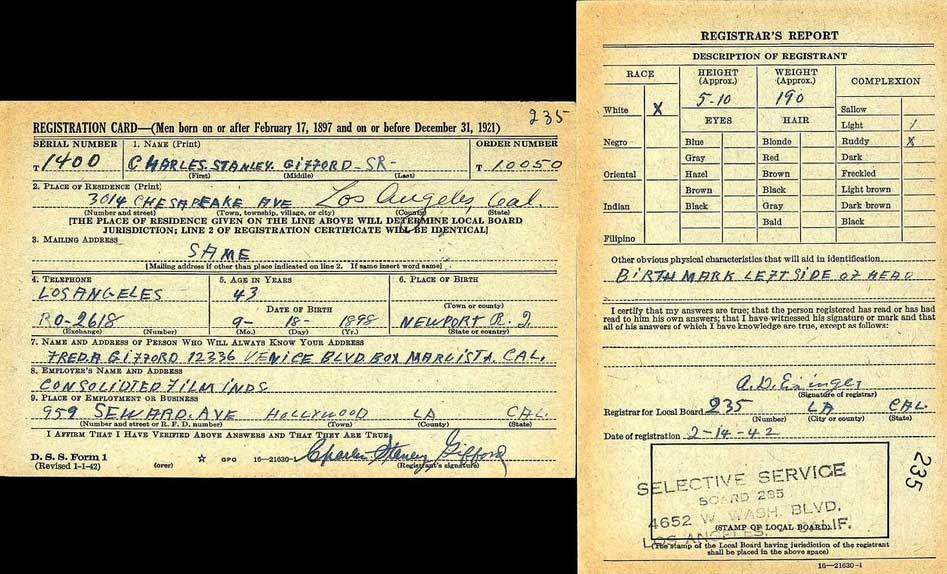 235
REGISTRATION CARD—(Men born on or after February 17, 1897 and on or before December 31, 1921)
SERIAL NUMBER 1. NAME (Print) ORDER NUMBER
T 1400 CHARLES. STANLEY. GIFFORD - SR - T 10050
(First) (Middle) (Last)
2. PLACE OF RESIDENCE (Print)
3014 CHESAPEAKE AVE Los Angeles, Cal.
(Number and street) (Town, township, village, or city) (County) (State)
[THE PLACE OF RESIDENCE GIVEN ON THE LINE ABOVE WILL DETERMINE LOCAL BOARD
JURISDICTION; LINE 2 OF REGISTRATION CERTIFICATE WILL BE IDENTICAL]
3. MAILING ADDRESS
SAME
[Mailing address if other than place indicated on line 2. If same insert word same]
4. TELEPHONE 5. AGE IN YEARS 6. PLACE OF BIRTH
LOS ANGELES 43
DATE OF BIRTH (Town or county)
RO-2618 9- 18- 1898 NEWPORT R. I.
(Exchange) (Number) (Mo.) (Day) (Yr.) (State or country)
7. NAME AND ADDRESS OF PERSON WHO WILL ALWAYS KNOW YOUR ADDRESS
FRED.A GIFFORD 12336 VENICE BLVD. BOX MARLISTA. CAL.
8. EMPLOYER'S NAME AND ADDRESS
CONSOLIDTED FILM INDS
9. PLACE OF EMPLOYMENT OR BUSINESS
959 SEWARD. AVE HOLLYWOOD LA CAL.
(Number and street or R. F. D. number) (Town) (County) (State)
I AFFIRM THAT I HAVE VERIFIED ABOVE ANSWERS AND THAT THEY ARE TRUE.
D. S. S. Form 1
(Revised 1-1-42) (over) GPO 16—21630-1 Charles Stanley Gifford
(Registrant's signature)
REGISTRAR'S REPORT
DESCRIPTION OF REGISTRANT
RACE HEIGHT (Approx.) WEIGHT (Approx.) COMPLEXION
White X 5-10 190 Sallow
EYES HAIR Light /
Negro Blue Blonde Ruddy X
Gray Red Dark
Oriental Hazel Brown Freckled
Brown Black Light brown
Indian Black Gray Dark brown
Bald Black
Filipino
Other obvious physical characteristics that will aid in identification
BIRTH MARK LEFT SIDE OF HEAD
I certify that my answers are true; that the person registered has read or has had
read to him his own answers; that I have witnessed his signature or mark and that
all of his answers of which I have knowledge are true, except as follows:
A.D.
(Signature of registrar)
Registrar for Local Board 235 LA CAL.
(Number) (City or county) (State)
Date of registration 2-14-42
235
SELECTIVE SERVICE
BOARD 235
4652 W. WASH. BLVD.
(STAMP OF LOCAL BOARD)
LOS ANGELES, CALIF.
(The stamp of the Local Board having jurisdiction of the registrant
shall be placed in the above space)
16—21630-1